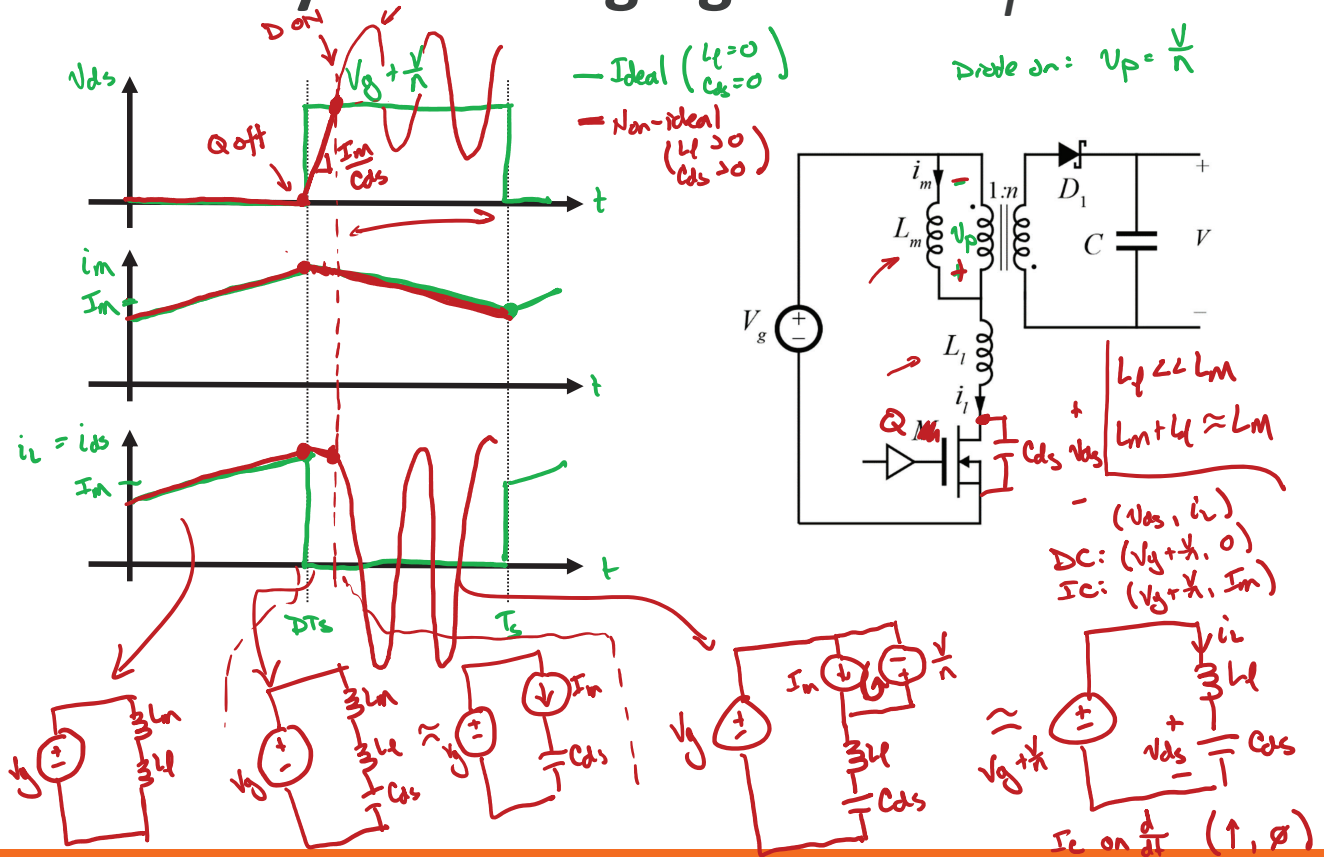 D ON
Vds
Vg + V/n
Q off
Im/Cds
t
— Ideal (Lℓ=0
Cds=0)
— Non-ideal
(Lℓ>0
Cds>0)
Diode on: Vp = V/n
im
Im
t
iL = ids
Im
t
DTs
Ts
im
-
1:n
D1
+
Lm
Vp
C
V
+
Vg
+
−
−
Ll
il
Q
Cds
+
Vds
-
Lℓ << Lm
Lm+Lℓ ≈ Lm
(Vds, iL)
DC: (Vg+V/n, 0)
IC: (Vg+V/n, Im)
Vg
+
-
Lm
Lℓ
Vg
+
-
Lm
Lℓ
Cds
≈
Vg
+
-
Im
Cds
Vg
+
-
Im
-
+
V/n
Lℓ
Cds
≈
Vg+V/n
+
-
iL
Lℓ
+
Vds
-
Cds
Ic on d/dt (↑, ø)